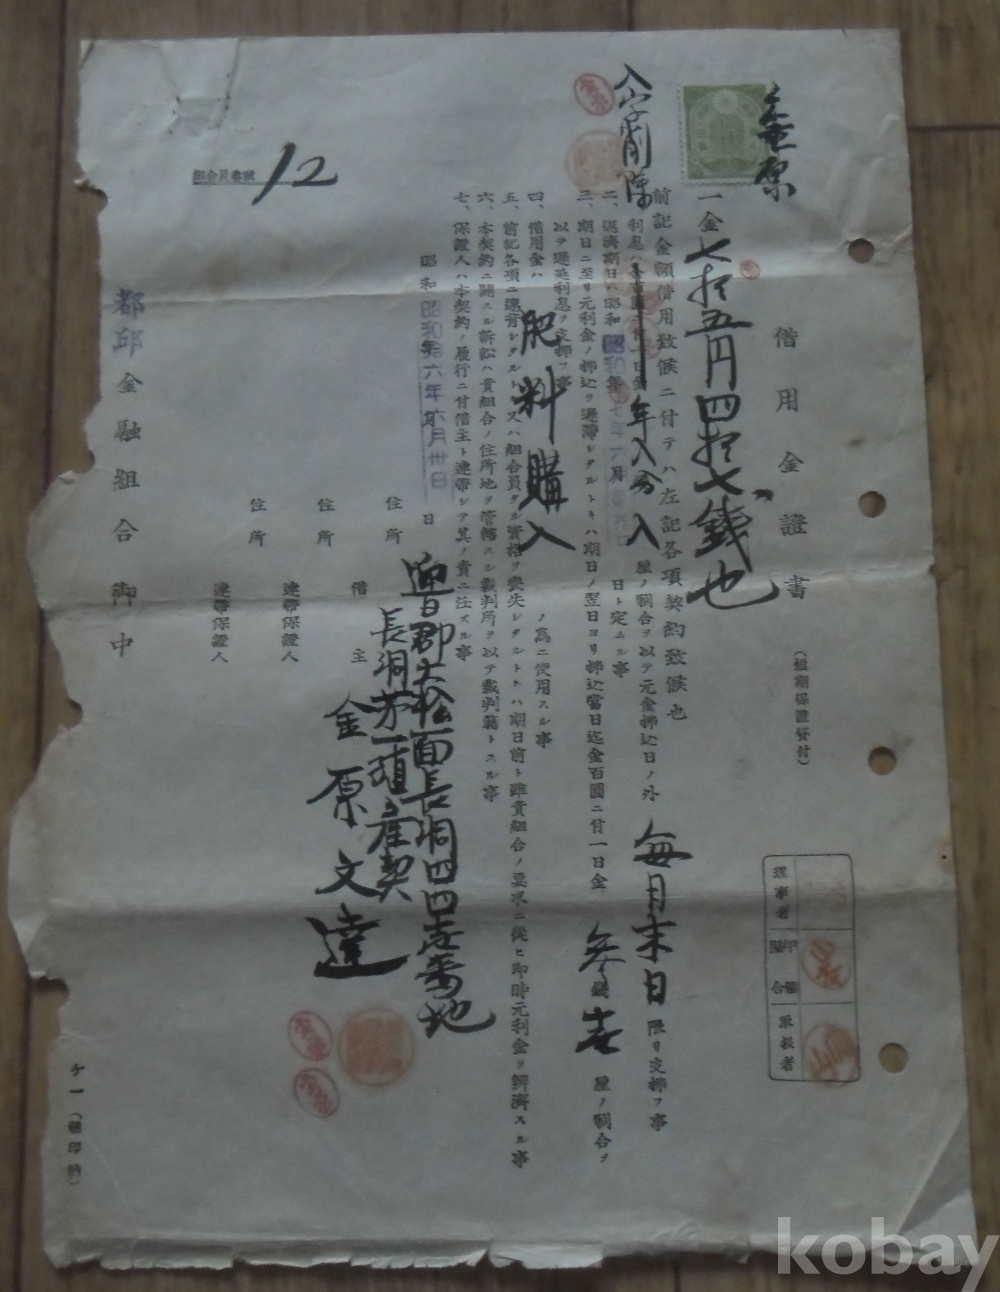 金原
八字削除
組合員番號 12
借用金證書
(短期保證貸付)
一金七拾五円四拾七錢也
前記金額借用致候ニ付テハ左記各項契約致候也
厘ノ割合ヲ以テ元金拂込日ノ外 每月末日 限リ支拂フ事
二、返濟期日ハ昭和
日ト定ムル事
三、期日ニ至リ元利金ノ拂込ヲ遲滯シタルトキハ期日ノ翌日ヨリ拂込當日迄金百圓ニ付一日金 參錢壱 厘ノ割合ヲ
以テ遲延利息ヲ支拂フ事
四、借用金ハ 肥料購入 ノ爲ニ使用スル事
五、前記各項ニ違背シタルトキ又ハ組合員タル資格ヲ喪失シタルトキハ期日前ト雖貴組合ノ要求ニ從ヒ卽時元利金ヲ辨濟スル事
六、本契約ニ關スル訴訟ハ貴組合ノ住所地ヲ管轄スル裁判所ヲ以テ裁判籍トスル事
七、保證人ハ本契約ノ履行ニ付借主ト連帶シテ其ノ責ニ任ズル事
昭和 昭和拾六年六月卅日
住所 迎日郡大松面長洞四四壱番地
長洞第一殖産契
借主 金原文達
住所
連帶保證人
住所
連帶保證人
都邱金融組合 御中
理事者
印鑑照合
取扱者
ケ一(朝印納)
kobay